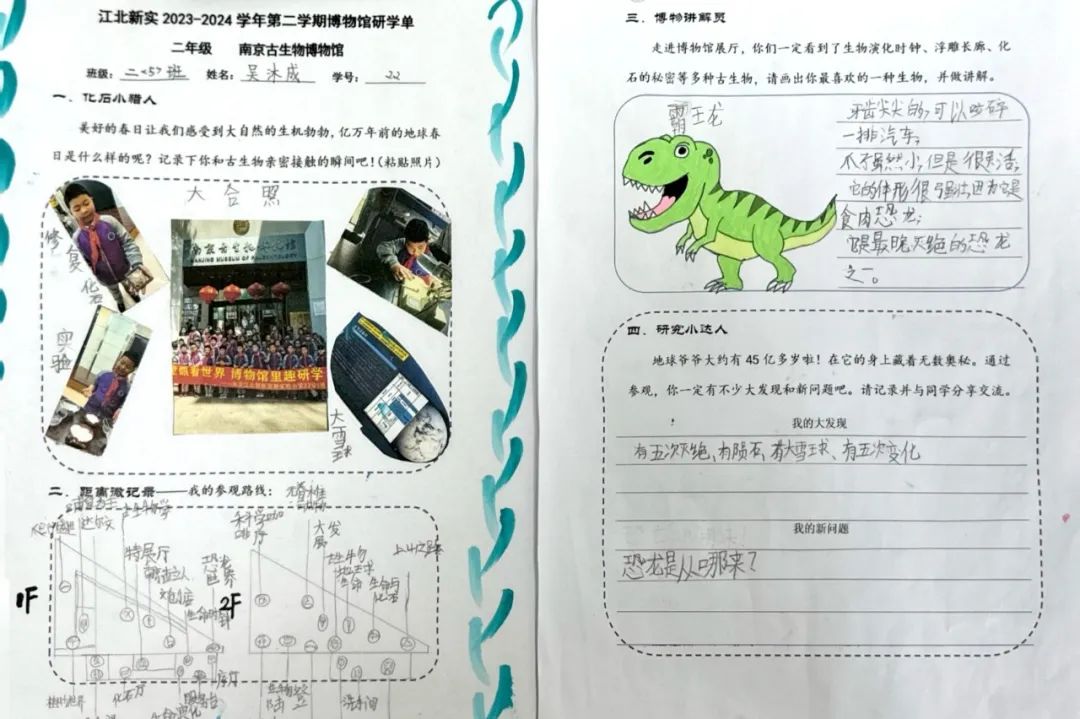 江北新实 2023-2024 学年第二学期博物馆研学单
二年级 南京古生物博物馆
班级：二<5>班 姓名：吴沐成 学号：22
一．化石小猎人
美好的春日让我们感受到大自然的生机勃勃，亿万年前的地球春
日是什么样的呢？记录下你和古生物亲密接触的瞬间吧！（粘贴照片）
大合照
修复化石
实验
NANJING MUSEUM OF PALAEONTOLOGY
眼看世界 博物馆里趣研学
大雪球
二．距离微记录——我的参观路线：
达尔文
古生物学
特展厅
恐龙世界
生命时钟
科学咖啡厅
大发展
上山之路
生命与化石
1F
2F
化石厅
服务台
洗手间
三．博物讲解员
走进博物馆展厅，你们一定看到了生物演化时钟、浮雕长廊、化
石的秘密等多种古生物，请画出你最喜欢的一种生物，并做讲解。
霸王龙
牙齿尖尖的，可以咬碎
一排汽车；
爪子虽然小，但是很灵活；
它的体形很强壮，因为它是
食肉恐龙；
它是最晚灭绝的恐龙
之一。
四．研究小达人
地球爷爷大约有 45 亿多岁啦！在它的身上藏着无数奥秘。通过
参观，你一定有不少大发现和新问题吧。请记录并与同学分享交流。
我的大发现
有五次灭绝、有陨石、有大雪球、有五次变化
我的新问题
恐龙是从哪来？